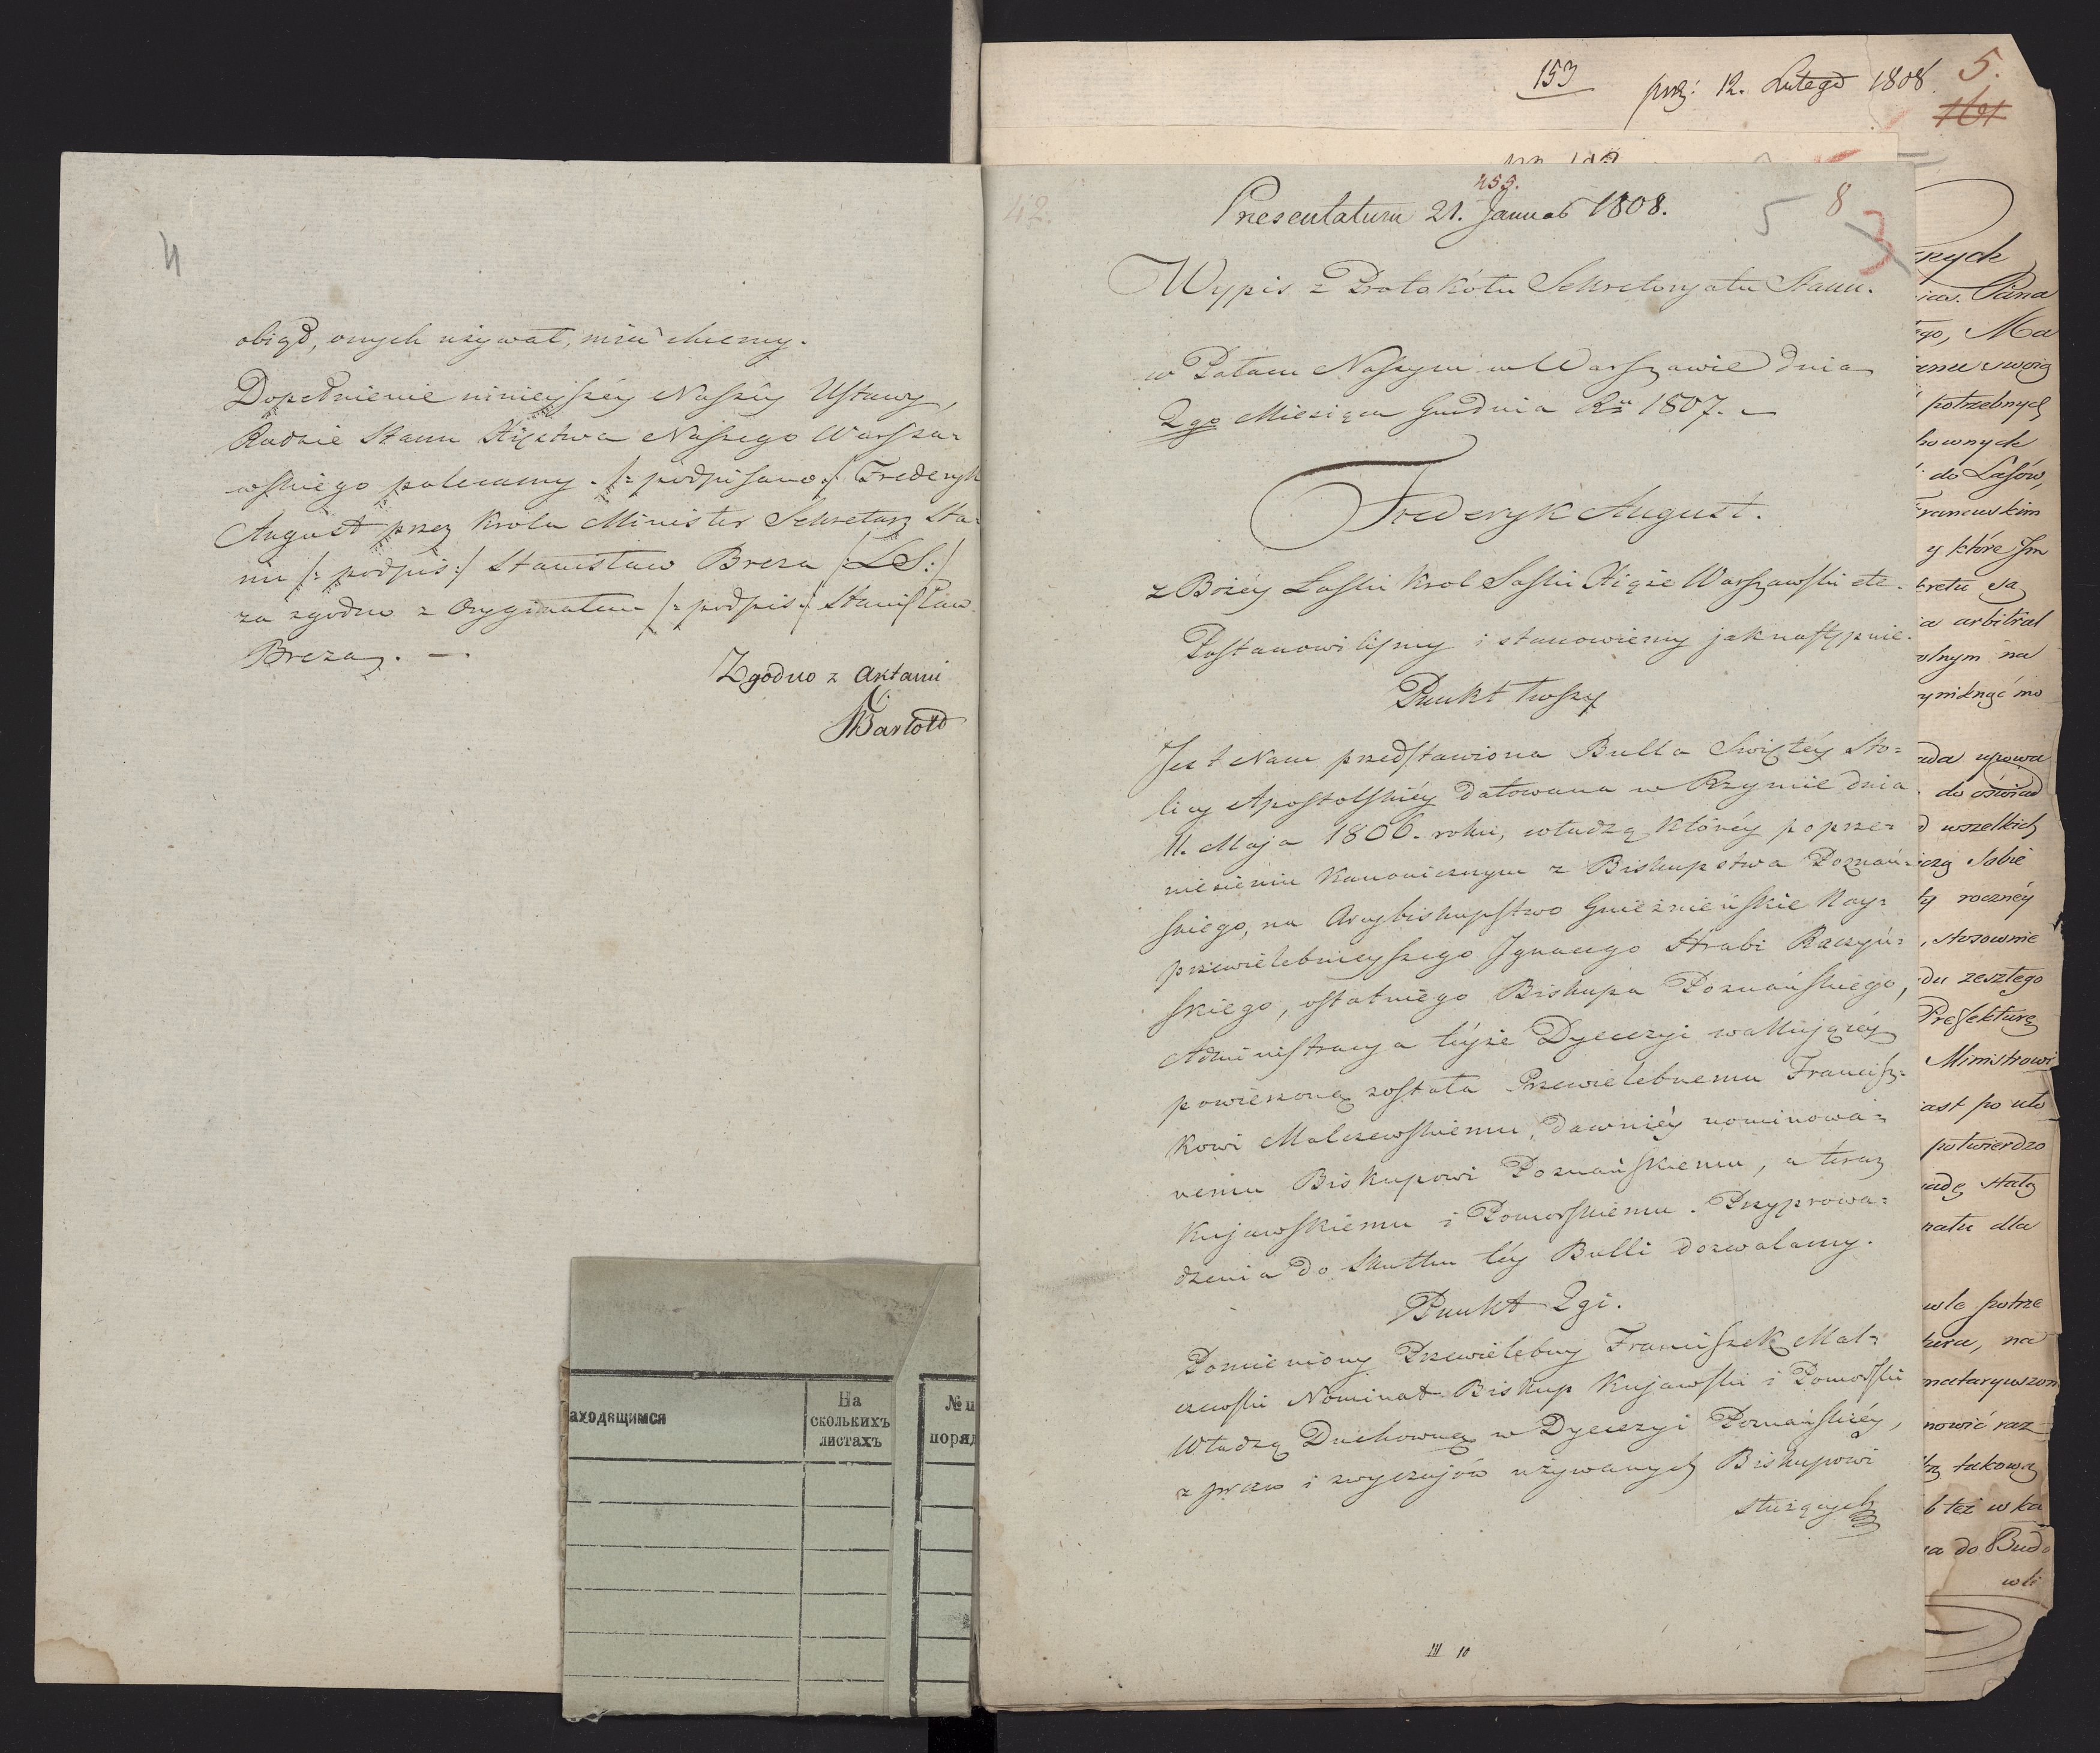 4
obiąd, onych używał, mieć chcemy.
Dopełnienie ninieyszéy Naszéy Ustawy,
Radzie Stanu Xięstwa Naszego Warsza=
wskiego polecamy. /: podpisano :/ Frederyk
August przez Krola Minister Sekretarz Sta=
nu /: podpis :/ Stanisław Breza /:LS:/
za zgodno z Oryginałem /: podpis :/ Stanisław
Breza. —.
Zgodno z Aktami
Bartold
аходящимся
На
сколькихъ
листахъ
№ п
поряд
153
prez: 12. Lutego 1808
5.
161
42.
455.
Presentatum 21. Januar 1808.
5
8
3
Wypis z Protokółu Sekretaryatu Stanu.
w Pałacu Naszym w Warszawie dnia
2go Miesiąca Grudnia Rku 1807. —
Frederyk August.
z Bożéy Łaski Krol Saski Xiąże Warszawski etc.
Postanowilismy i stanowiemy jak następnie.
Punkt 1wszy
Jest Nam przedstawiona Bulla Swiętéy Sto=
licy Apostolskiéy datowana w Rzymie dnia
11. Maja 1806. roku, władzą któréy po prze=
niesieniu Kanonicznym z Biskupstwa Poznań=
skiego, na Arcybiskupstwo Gnieźnieńskie Nay=
przewielebnieyszego Ignacego Hrabi Raczyń=
skiego, ostatniego Biskupa Poznańskiego,
Administracya téyże Dyecezyi wakuiącéy
powierzoną została Przewielebnemu Francisz=
kowi Malczewskiemu, dawniéy nominowa=
nemu Biskupowi Poznańskiemu, a teraz
Kujawskiemu i Pomorskiemu. Przyprowa=
dzenia do skutku téy Bulli dozwalamy.
Punkt 2gi.
Pomieniony Przewielebny Franciszek Mal=
czewski Nominat Biskup Kujawski i Pomorski
Władzą Duchowną w Dyecezyi Poznańskiéy,
z praw i zwyczajów używanych Biskupowi
służących
III 10
znych
Pana
tego, Ma
swoią
potrzebnych
hownych
do Lasów,
Francuskim
y które Jm
kretu są
ia arbitral
olnym na
yniknąć mo
ada upowa
do oświad
d wszelkich
iczą sobie
ty roczney
, stosownie
du zeszłego
Prefekturę
Ministrowi
iast po uło
potwierdzo
radę stałą
natu dla
wle potrze
tura, na
mataryuszom
nowić raz
tą takową
b też w ka
ia do Budo
wli